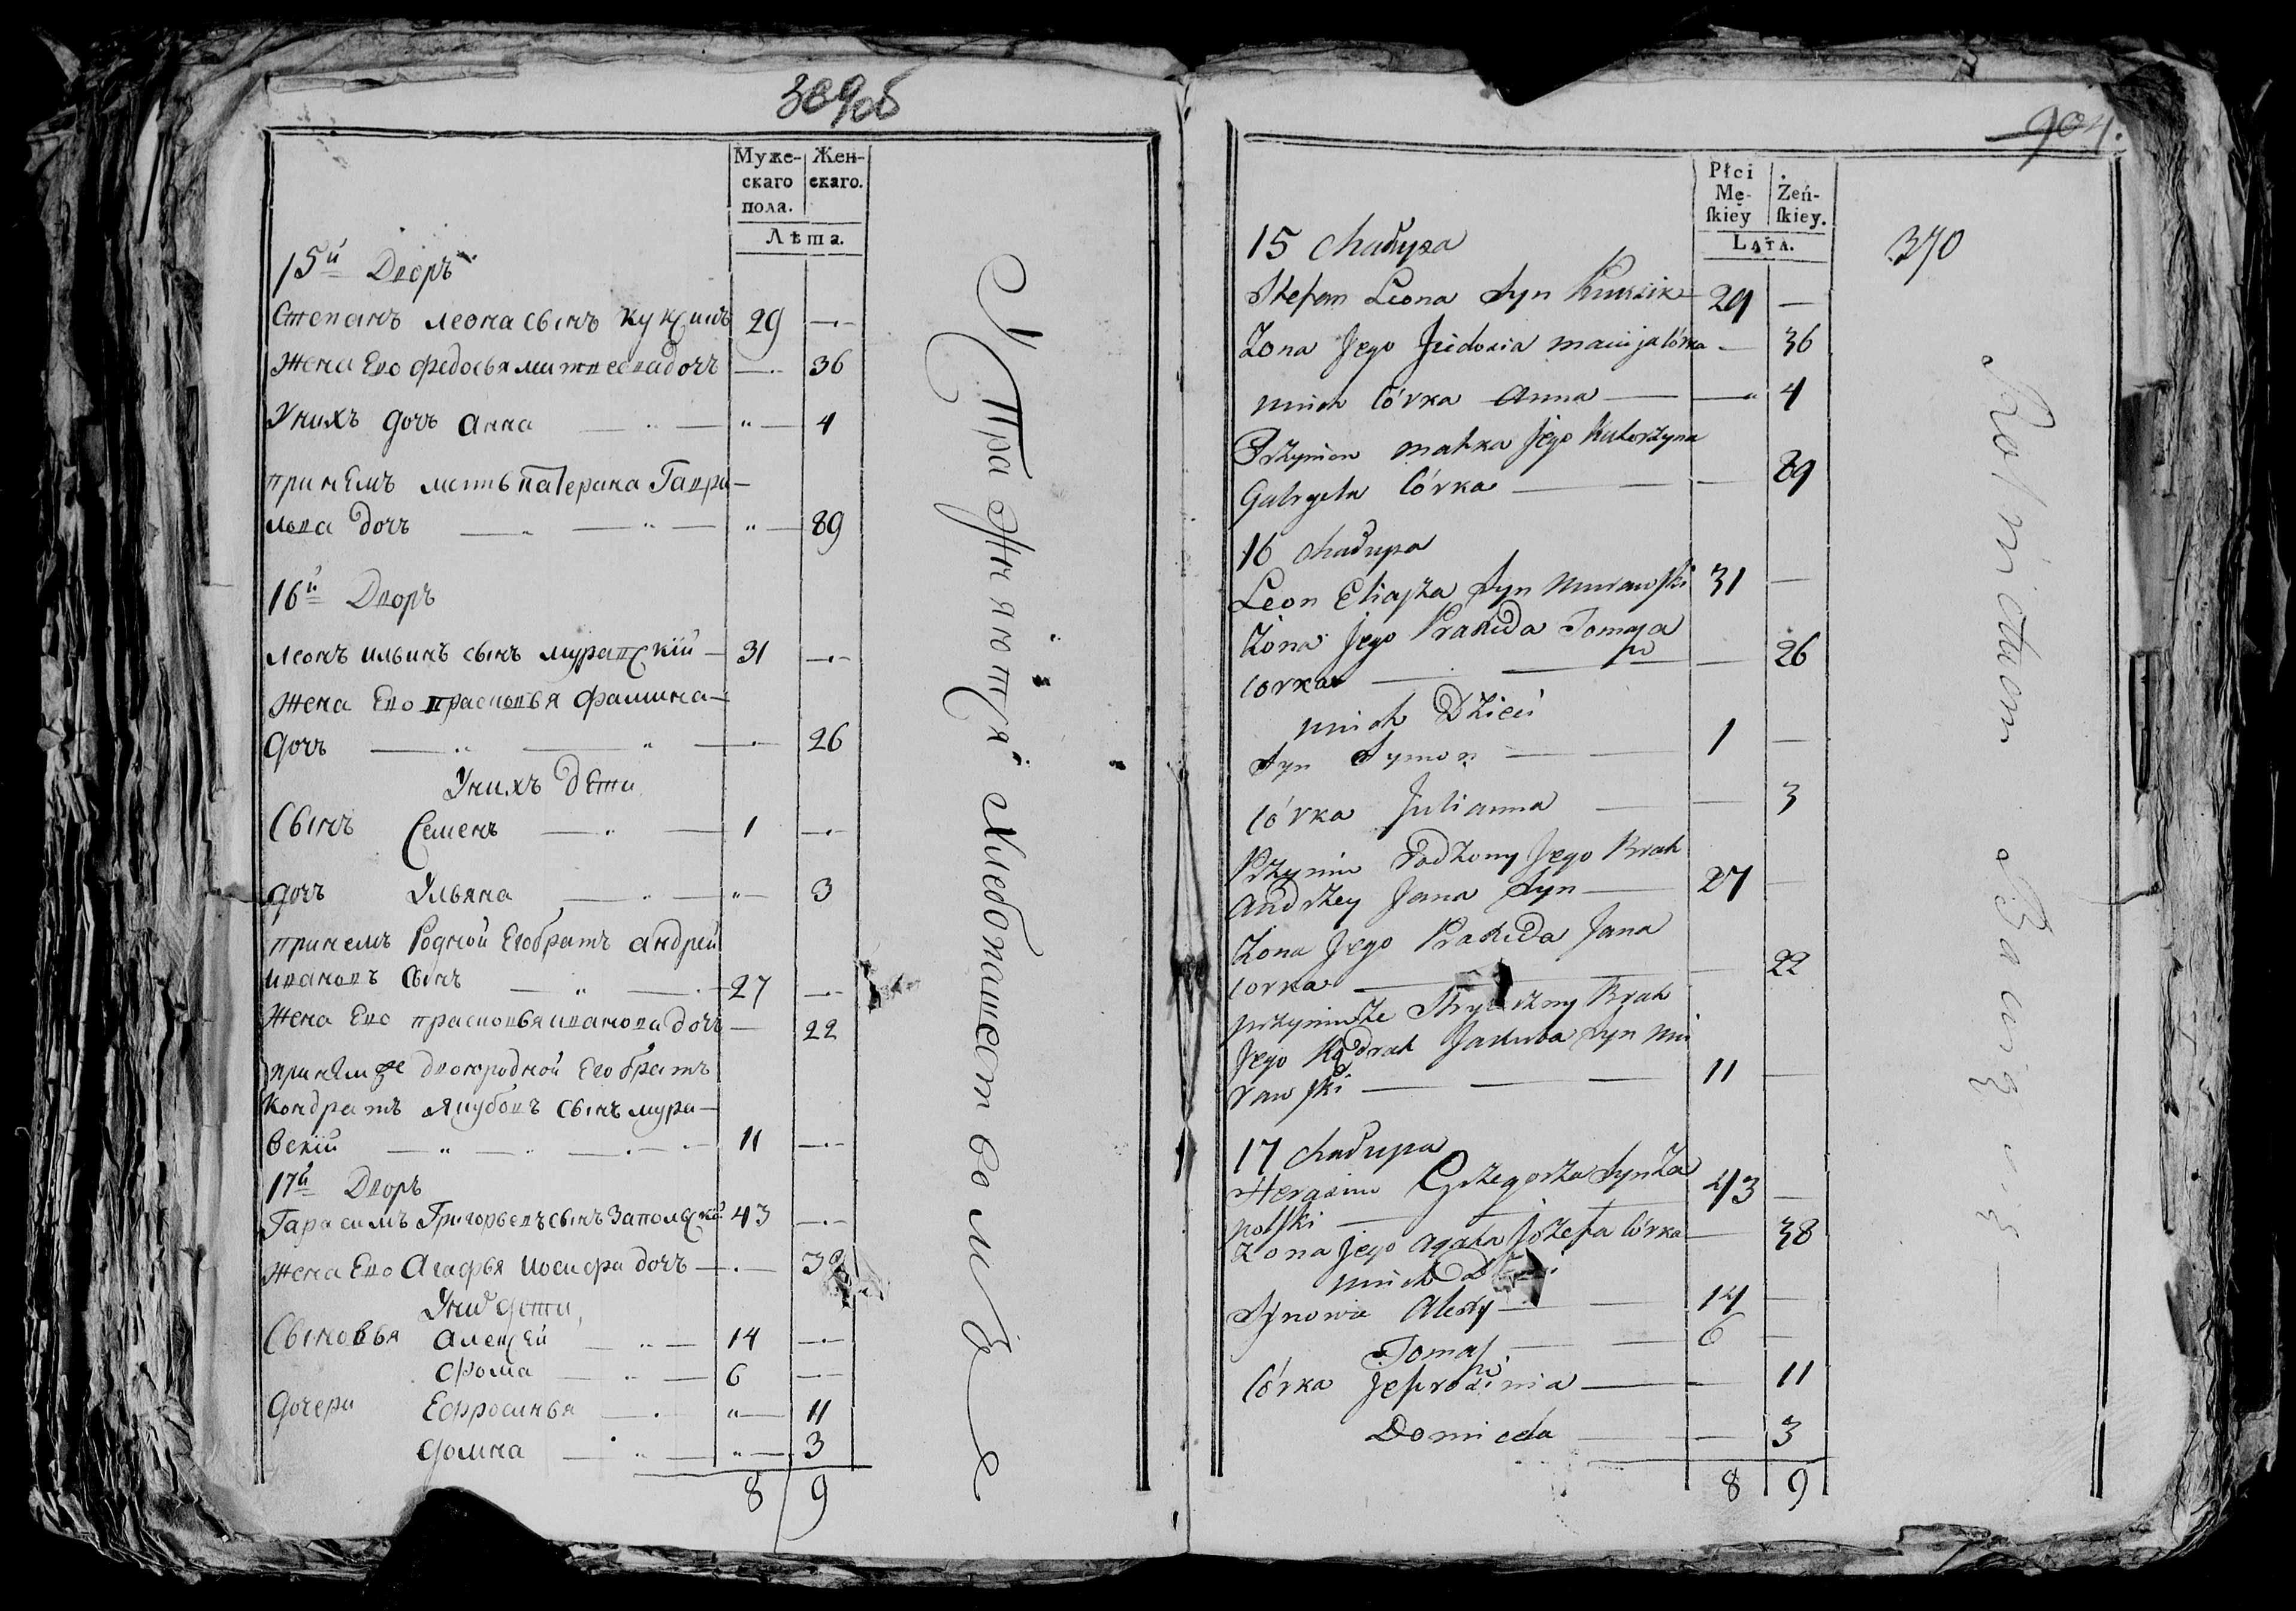 369об
Муже-
скаго
пола.
Жен-
скаго.
Лѣта.
15й Дворъ
Степанъ леона сынъ куксикъ 29 —
Жена Его федосья матвеева дочъ — 36
Унихъ дочъ анна — 4
принемъ мать Катерина Гаври-
льва дочъ — 89
16й Дворъ
леонъ ильинъ сынъ муравскій — 31 —
Жена Ево прасковья фамина —
дочъ — 26
Унихъ дети
Сынъ Семенъ — 1 —
дочъ Ульяна — 3
принемъ Родной Егобратъ андрей
ивановъ сынъ — 27 —
Жена Ево прасковья иванова дочъ — 22
принемже двоюродной Его братъ
Кондратъ якубовъ сынъ мура-
вскій — 11 —
17й Дворъ
Гарасимъ Григорьевъ сынъ Запольскій 43 —
Жена Ево Агафья иосифа дочъ — 38
Уних дети
Сыновья алексей — 14 —
фома — 6 —
дочери Ефросинья — 11
домна — 3
8 9
Упражняются хлебопашеством
904.
370
Płci
Mę-
ſkiey
Żeń-
ſkiey.
Lata.
15 Chałupa
Stefan Leona Syn Kuksik 29 —
Żona Jego Feidosia macija córka — 36
unich Córka Anna — 4
Przyniem matka Jego Katerzyna
Gabryela Córka — 89
16 Chałupa
Leon Eliaſza Syn Murawſki 31 —
Żona Jego Praxeda Tomaſza
corka — 26
unich Dzieci
Syn Symon — 1 —
Córka Julianna — 3
Przynim Rodzony Jego Brat
Andrzey Jana Syn — 27 —
Żona Jego Praxeda Jana
corka — 22
przynimże Stryieczny Brat
Jego Kądrat Jakuba Syn Mu
rawſki — 11 —
17 Chałupa
Herasim Grzegorza Syn Za
polſki — 43 —
Żona Jego Agata Józefa Córka — 38
unich
Synowie Alexy — 14 —
Tomaſz — 6 —
Córka Jefrosinia — 11
Domicela — 3
8 9